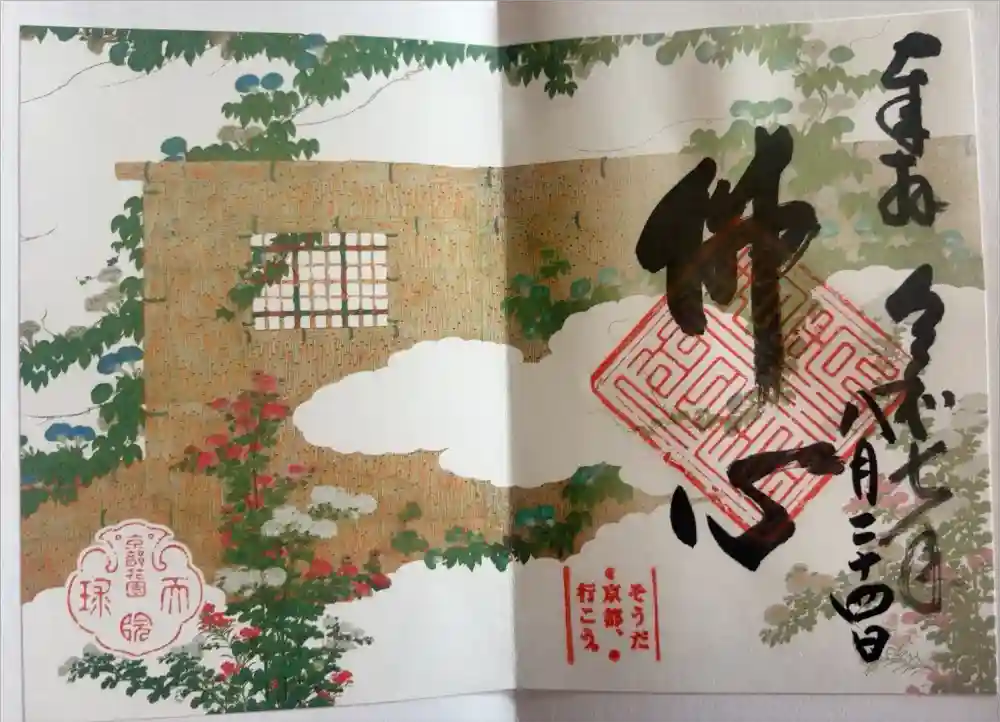 奉拝
令和七年
八月二十四日
佛心
そうだ
京都、
行こう。
京都花園
天球院